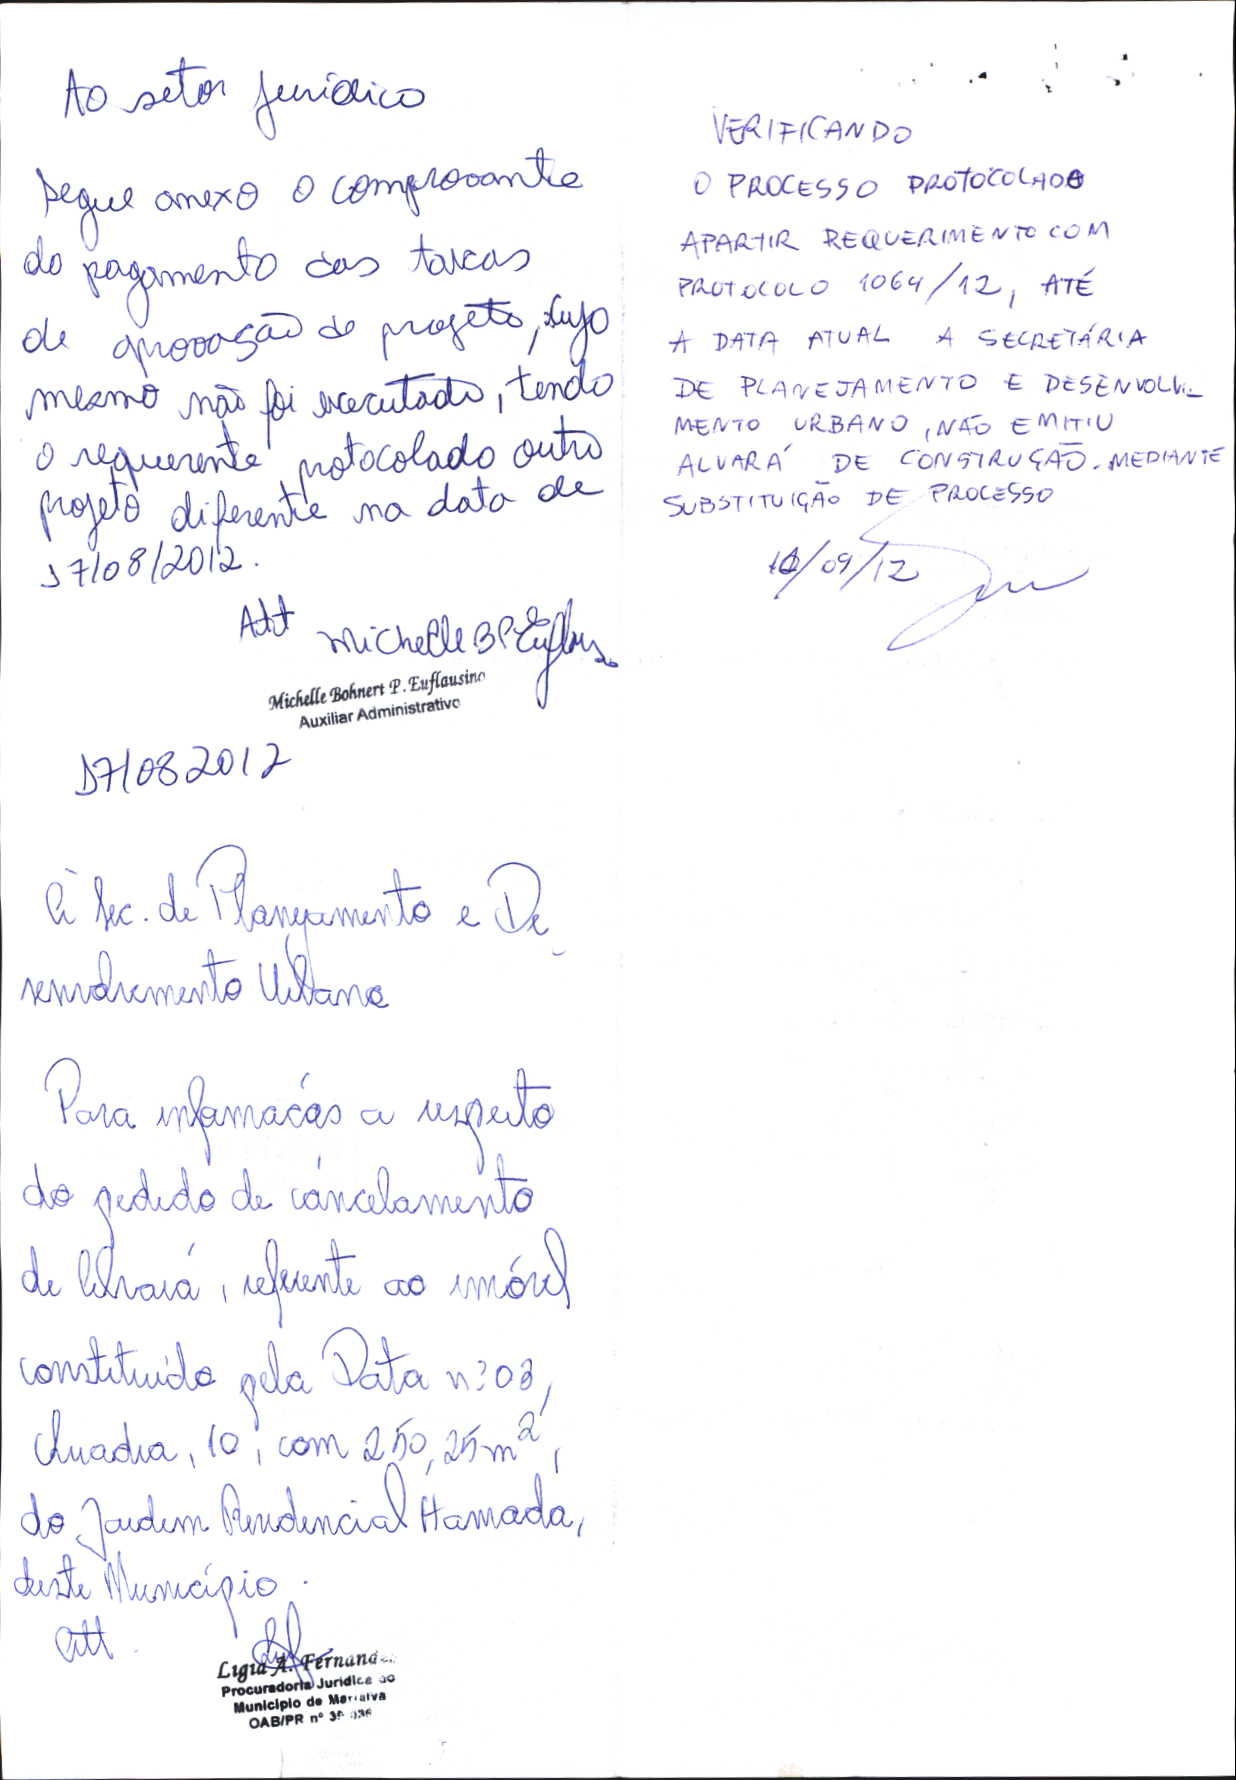 Ao setor jurídico
Segue anexo o comprovante
do pagamento das taxas
de aprovação de projeto, cujo
mesmo não foi executado, tendo
o requerente protocolado outro
projeto diferente na data de
17/08/2012.
Att Michelle B P Euflausino
Michelle Bohnert P. Euflausino
Auxiliar Administrativo
17/08 2012
À Sec. de Planejamento e De
senvolvimento Urbano
Para informações a respeito
do pedido de cancelamento
de Alvará, referente ao imóvel
constituído pela Data nº 03,
Quadra, 10, com 250,25 m²,
do Jardim Residencial Hamada,
deste Município.
Att.
Ligia A. Fernand
Procuradoria Jurídica do
Município de Marialva
OAB/PR nº
VERIFICANDO
O PROCESSO PROTOCOLADO
APARTIR REQUERIMENTO COM
PROTOCOLO 1064/12, ATÉ
A DATA ATUAL A SECRETÁRIA
DE PLANEJAMENTO E DESENVOLVI_
MENTO URBANO, NÃO EMITIU
ALVARÁ DE CONSTRUÇÃO. MEDIANTE
SUBSTITUIÇÃO DE PROCESSO
/09/12